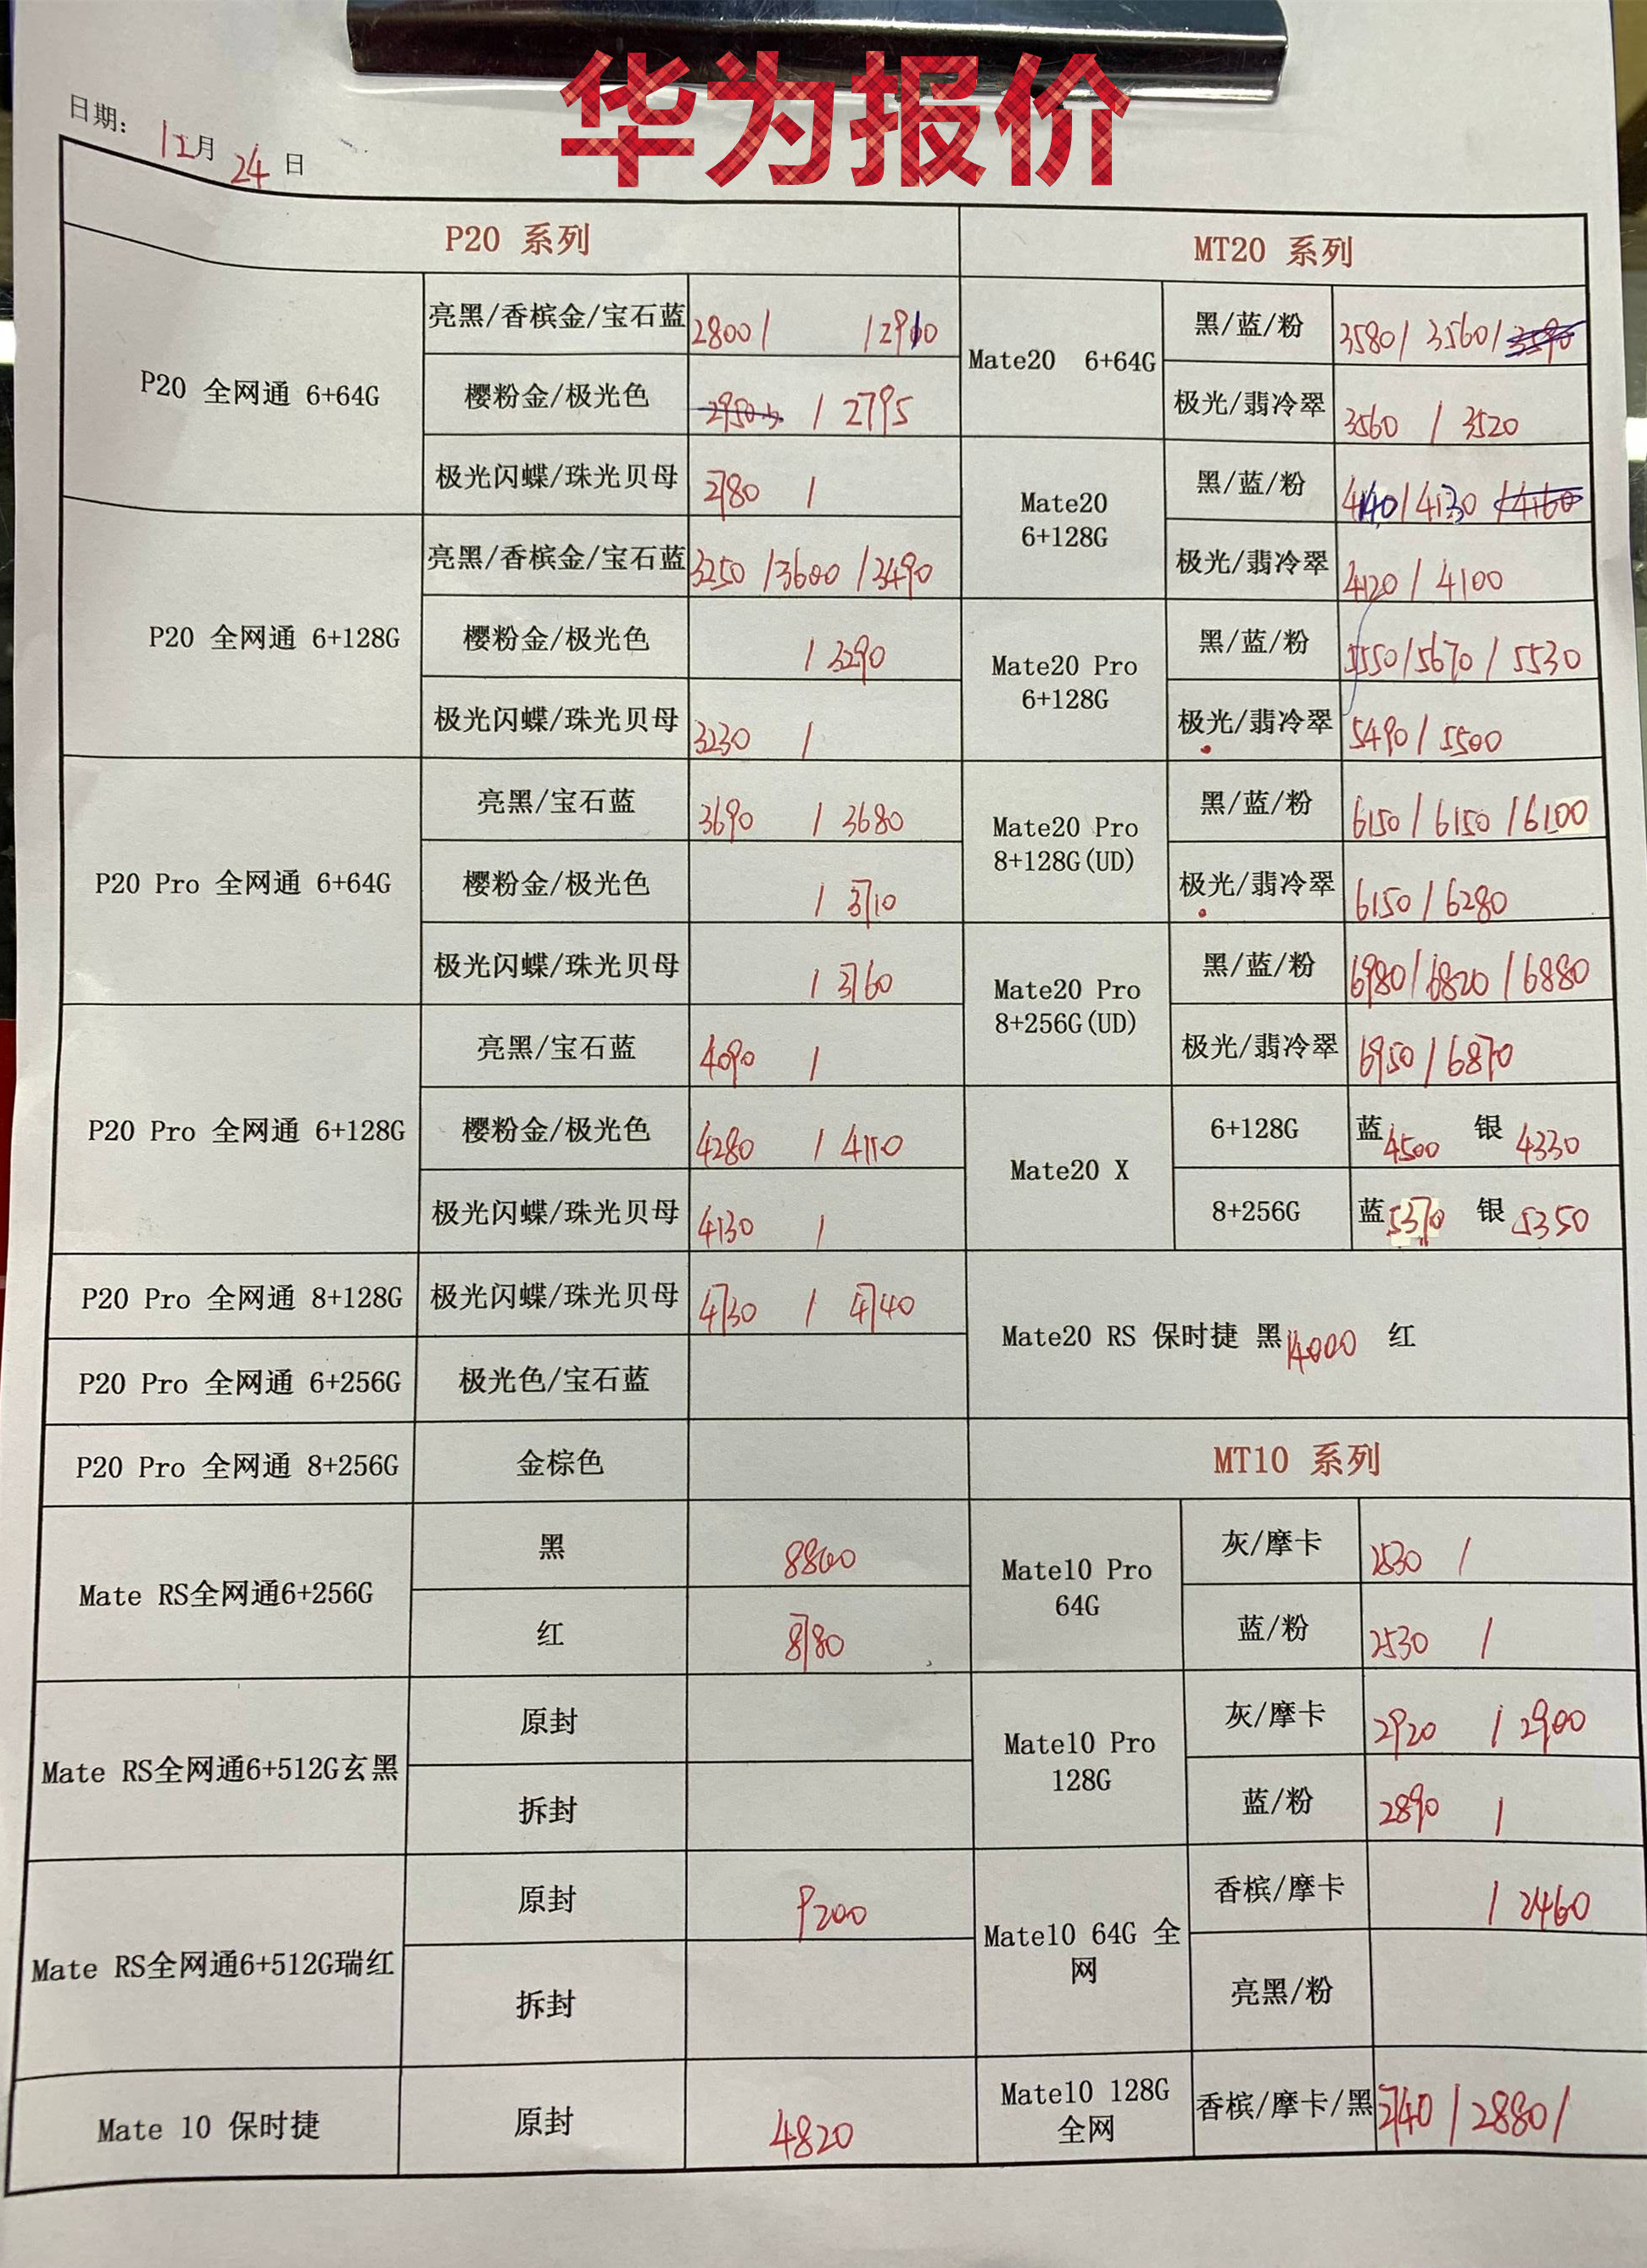 华为报价
日期: 12月 24日
P20 系列
P20 全网通 6+64G
亮黑/香槟金/宝石蓝 2800/ /2910
樱粉金/极光色 / 2795
极光闪蝶/珠光贝母 2780 /
P20 全网通 6+128G
亮黑/香槟金/宝石蓝 3250 /3600 /3490
樱粉金/极光色 / 3290
极光闪蝶/珠光贝母 3230 /
P20 Pro 全网通 6+64G
亮黑/宝石蓝 3690 / 3680
樱粉金/极光色 / 3710
极光闪蝶/珠光贝母 / 3760
P20 Pro 全网通 6+128G
亮黑/宝石蓝 4090 /
樱粉金/极光色 4280 / 4110
极光闪蝶/珠光贝母 4130 /
P20 Pro 全网通 8+128G 极光闪蝶/珠光贝母 4730 / 4740
P20 Pro 全网通 6+256G 极光色/宝石蓝
P20 Pro 全网通 8+256G 金棕色
Mate RS全网通6+256G
黑 8800
红 8780
Mate RS全网通6+512G玄黑
原封
拆封
Mate RS全网通6+512G瑞红
原封 9200
拆封
Mate 10 保时捷 原封 4820
MT20 系列
Mate20 6+64G
黑/蓝/粉 3580/ 3560/ 3590
极光/翡冷翠 3560 / 3520
Mate20
6+128G
黑/蓝/粉 4140/4130 /4160
极光/翡冷翠 4120 / 4100
Mate20 Pro
6+128G
黑/蓝/粉 5550/5670 / 5530
极光/翡冷翠 5490 / 5500
Mate20 Pro
8+128G(UD)
黑/蓝/粉 6150 / 6150 /6100
极光/翡冷翠 6150 / 6280
Mate20 Pro
8+256G(UD)
黑/蓝/粉 6980/6820 /6880
极光/翡冷翠 6950 / 6870
Mate20 X
6+128G 蓝4500 银 4330
8+256G 蓝5370 银 5350
Mate20 RS 保时捷 黑14000 红
MT10 系列
Mate10 Pro
64G
灰/摩卡 2530 /
蓝/粉 2530 /
Mate10 Pro
128G
灰/摩卡 2920 / 2900
蓝/粉 2890 /
Mate10 64G 全
网
香槟/摩卡 / 2460
亮黑/粉
Mate10 128G
全网
香槟/摩卡/黑 2740 / 2880/